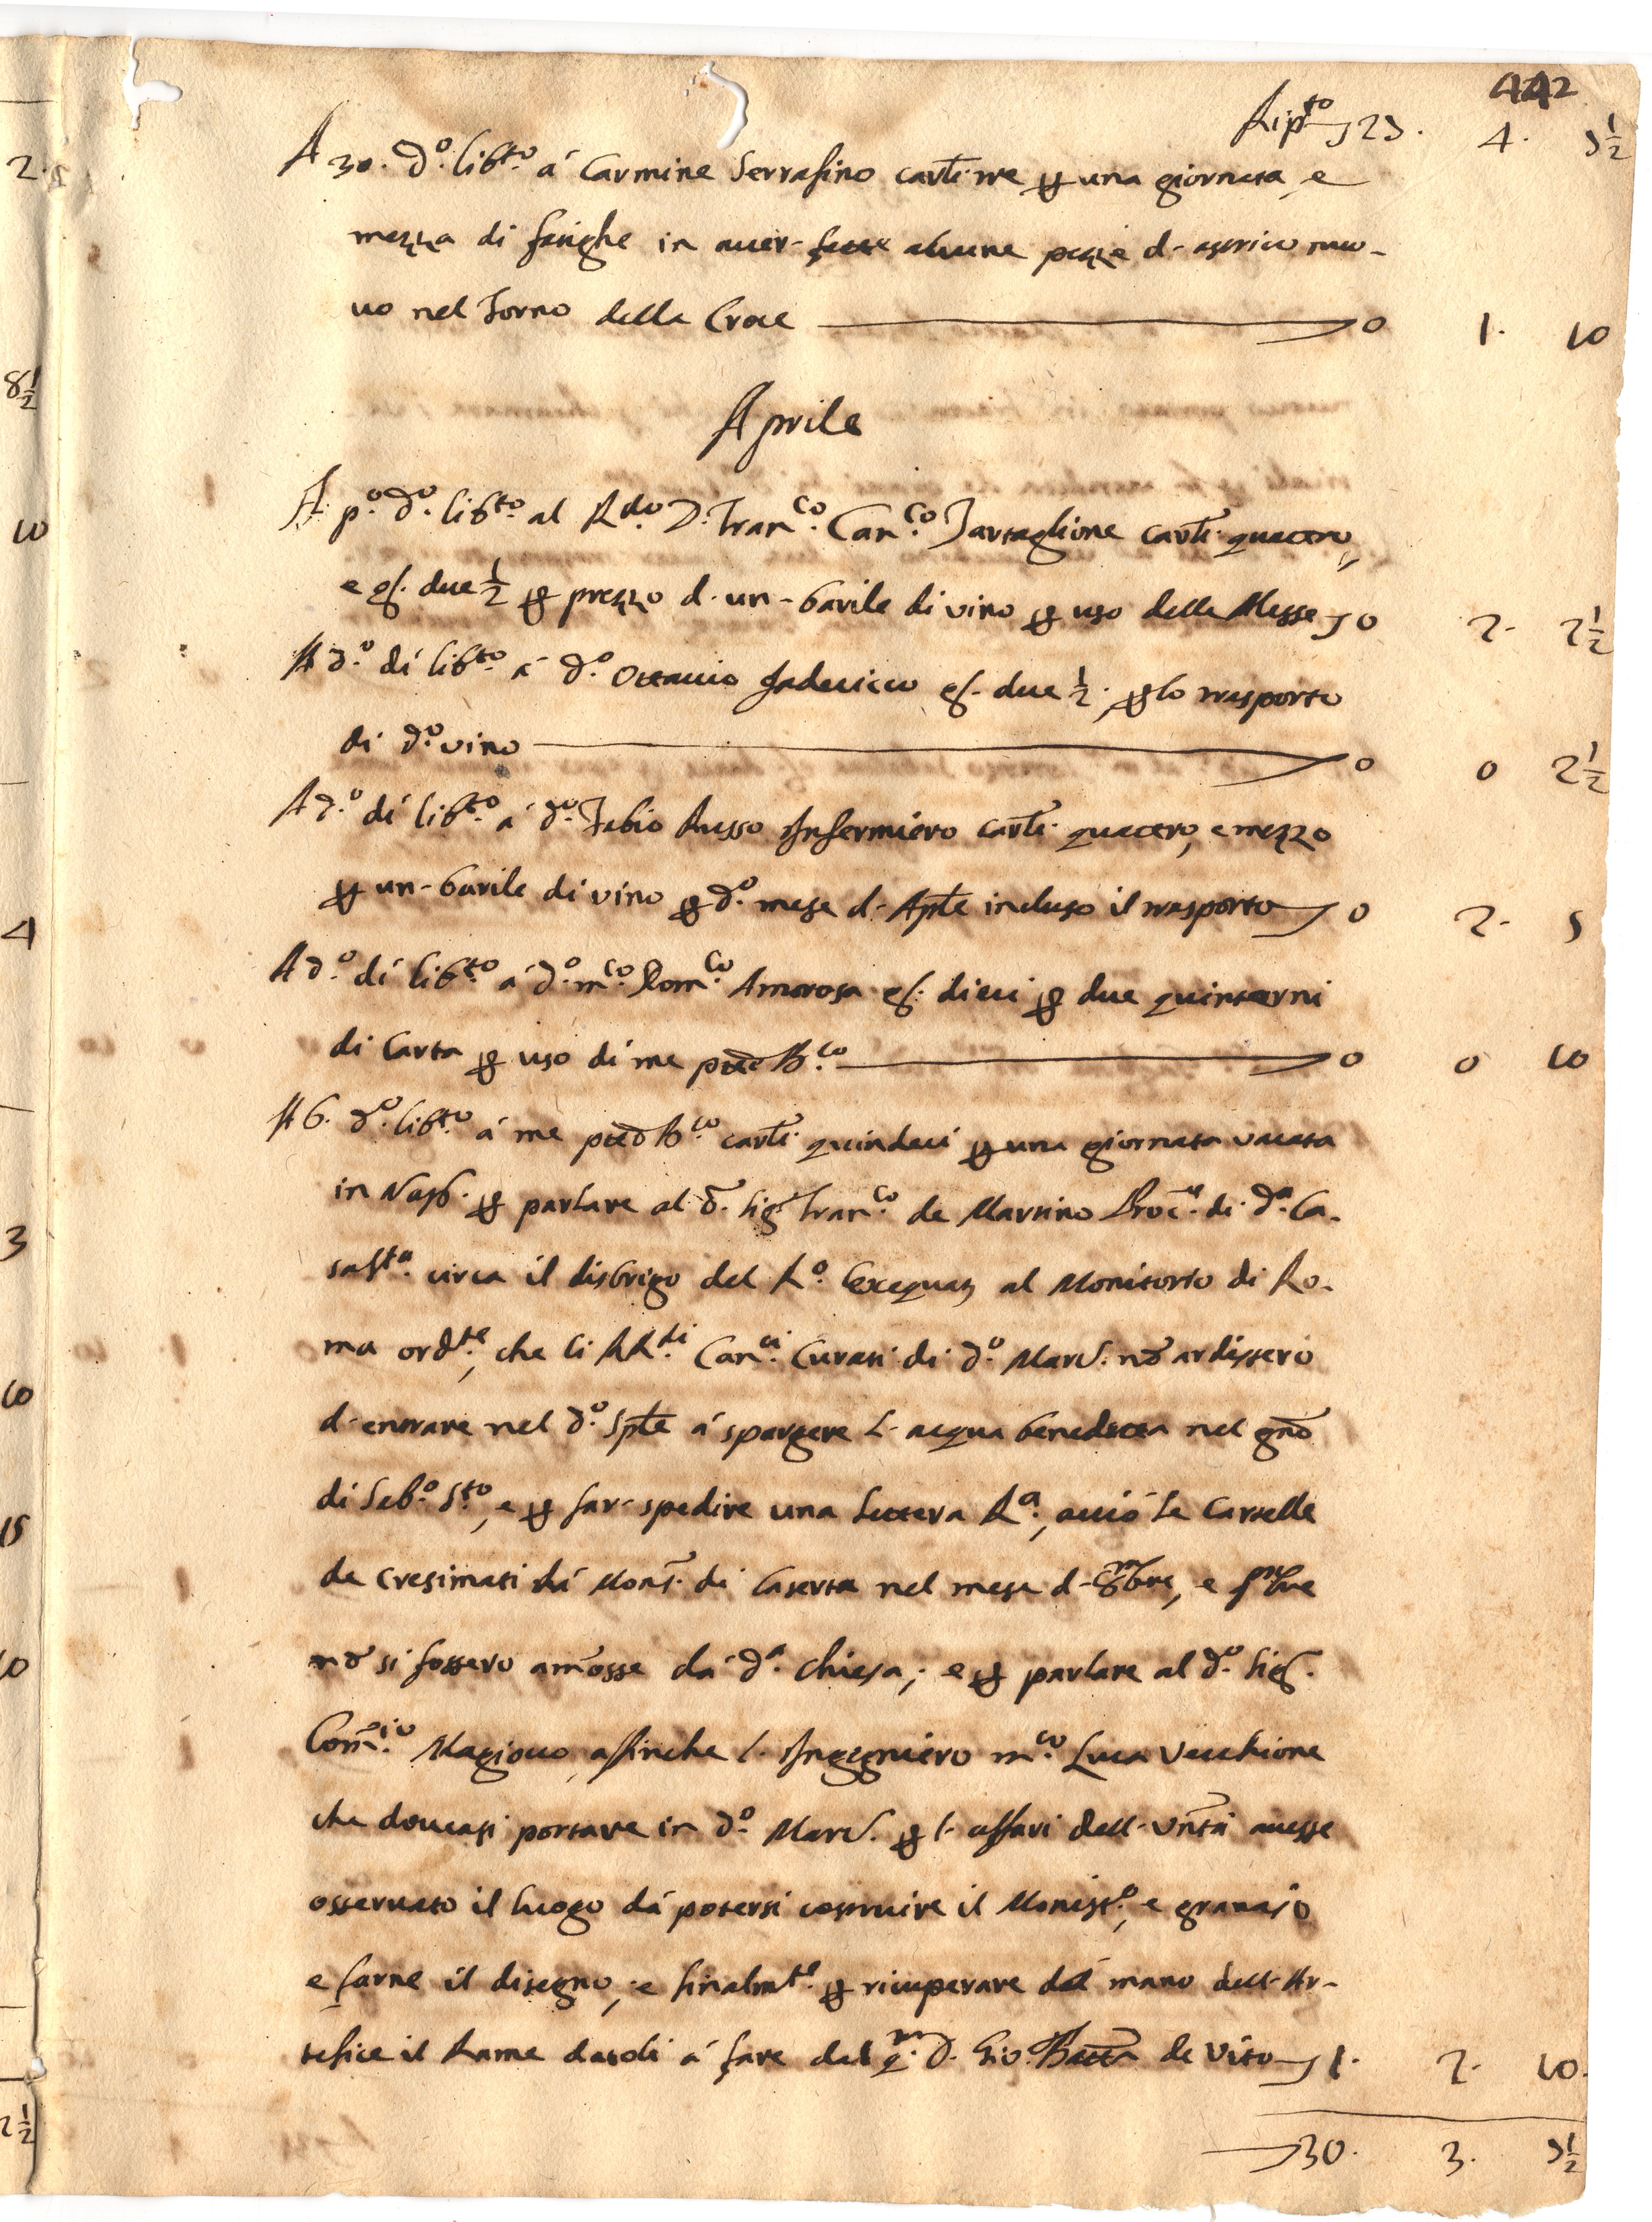 442
Rip.to 23. 4. 3½
A 30. d.o lib.to á Carmine Serrafino carl.i tre p una giornata, e
mezza di fatighe in aver-fatte alcune pezze d-astrico nuo-
uo nel Forno della Croce 0 1. 10
Aprile
A p.o d.o lib.to al R.do D. Fran.co Can.co Tartaglione carl.i quattro,
e g. due ½ p prezzo d-un-barile di vino p uso delle Messe 0 2. 2½
A d.o dí lib.to á d.o Ottauio Iadeuicco g. due ½, p lo trasporto
di d.o vino 0 0 2½
A d.o dí lib.to á d.o Fabio Russo Infermiero carl.i quattro, e mezzo
p un-barile di vino p d.o mese d-Aple incluso il trasporto 0 2. 5
A d.o dí lib.to á d.o m.co Dom.co Amorosa g. dieci p due quinterni
di Carta p uso di me pred.o 0 0 10
A 6. d.o lib.to á me pred.o carl.i quindeci p una giornata vacata
in Nap. p parlare al d.o Sig.r Fran.co de Martino Proc.re di d.a Ca-
sa S.ta circa il disbrigo del R.o Exequatur al Monitorio di Ro-
ma ord.te, che li RR.di Can.ci Curati di d.o Marc. nõ ardissero
d-entrare nel d.o Sple á spargere l-acqua benedetta nel gno
di Sab.o S.to, e p far-spedire una lettera R.a, acció le Cartelle
de Cresimati dá Mons.r di Caserta nel mese d-8bre, e 9bre
nõ si fossero amosse dá d.a Chiesa; e p parlare al d.o Sig.
Com.rio Magiocco affinche l-Ingegniero m.co Luca Vecchione
che doueasi portare in d.o Marc. p l-affari dell-Vñtá auesse
osseruato il luogo dá potersi costruire il Monist.o, e granajo
e farne il disegno, e finalm.te p ricuperare dá mano dell-Ar-
tefice il Rame datoli á fare dal q.m D. Gio: Batta de Vito 1. 2. 10.
30. 3. 3½